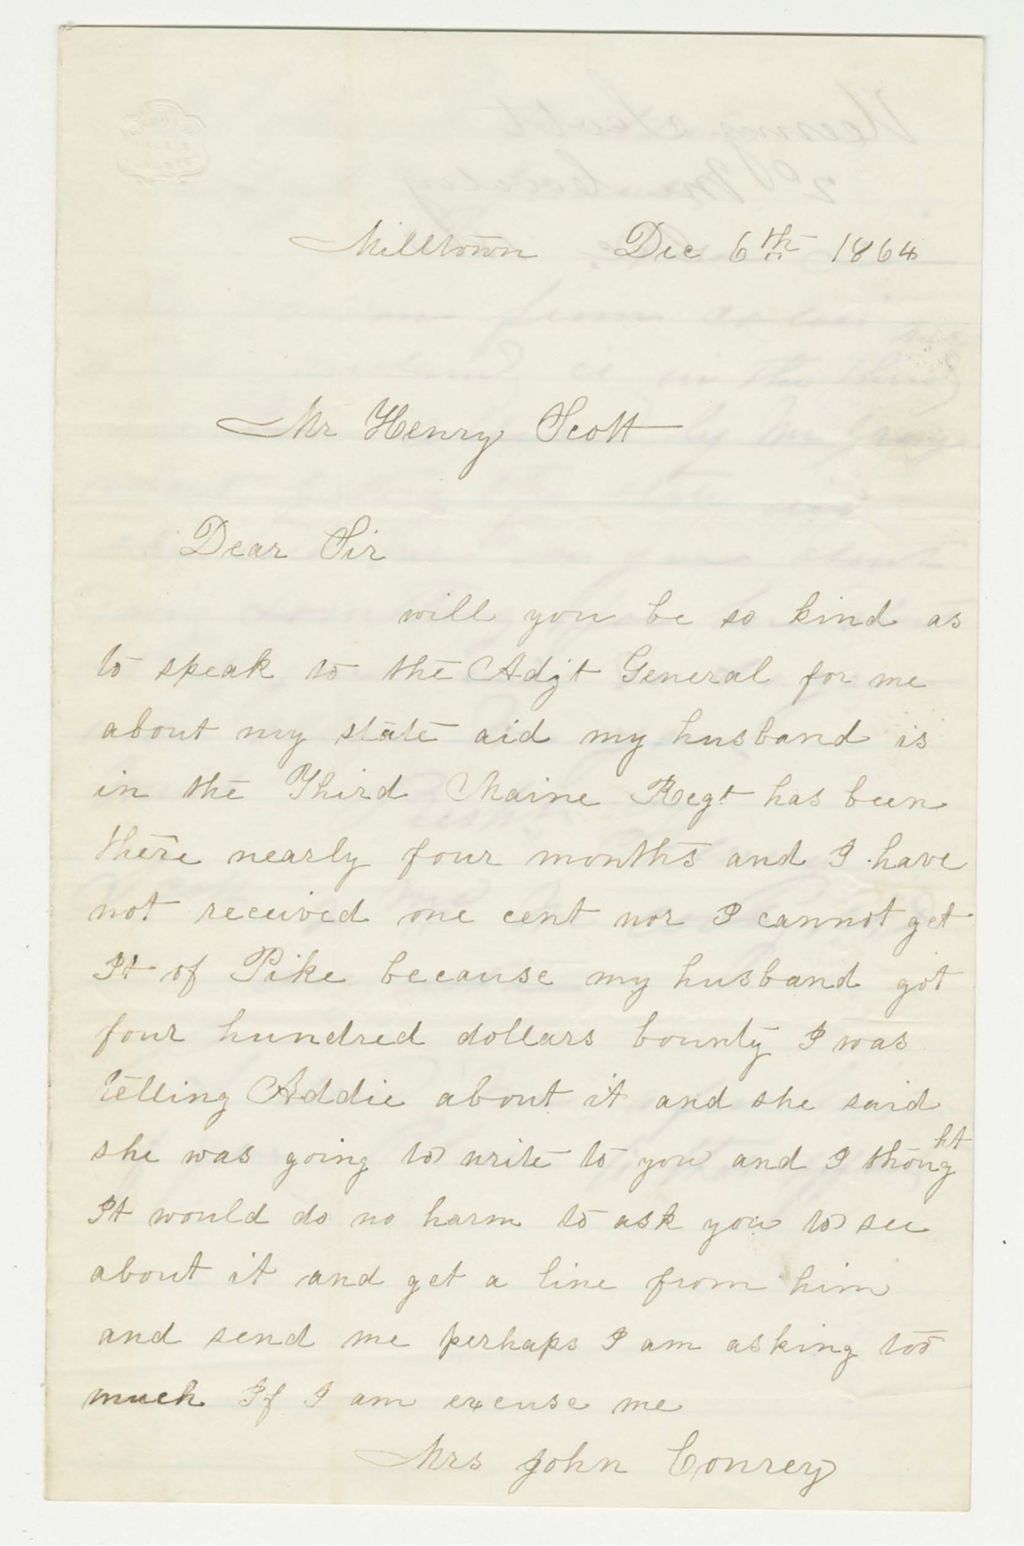 Milltown Dec 6th 1864
Mr Henry Scott
Dear Sir
will you be so kind as
to speak to the Adjt General for me
about my state aid my husband is
in the Third Maine Regt has been
there nearly four months and I have
not received one cent nor I cannot get
It of Pike because my husband got
four hundred dollars bounty I was
telling Addie about it and she said
she was going to write to you and I thought
It would do no harm to ask you to see
about it and get a line from him
and send me perhaps I am asking too
much If I am excuse me
Mrs John Conrey